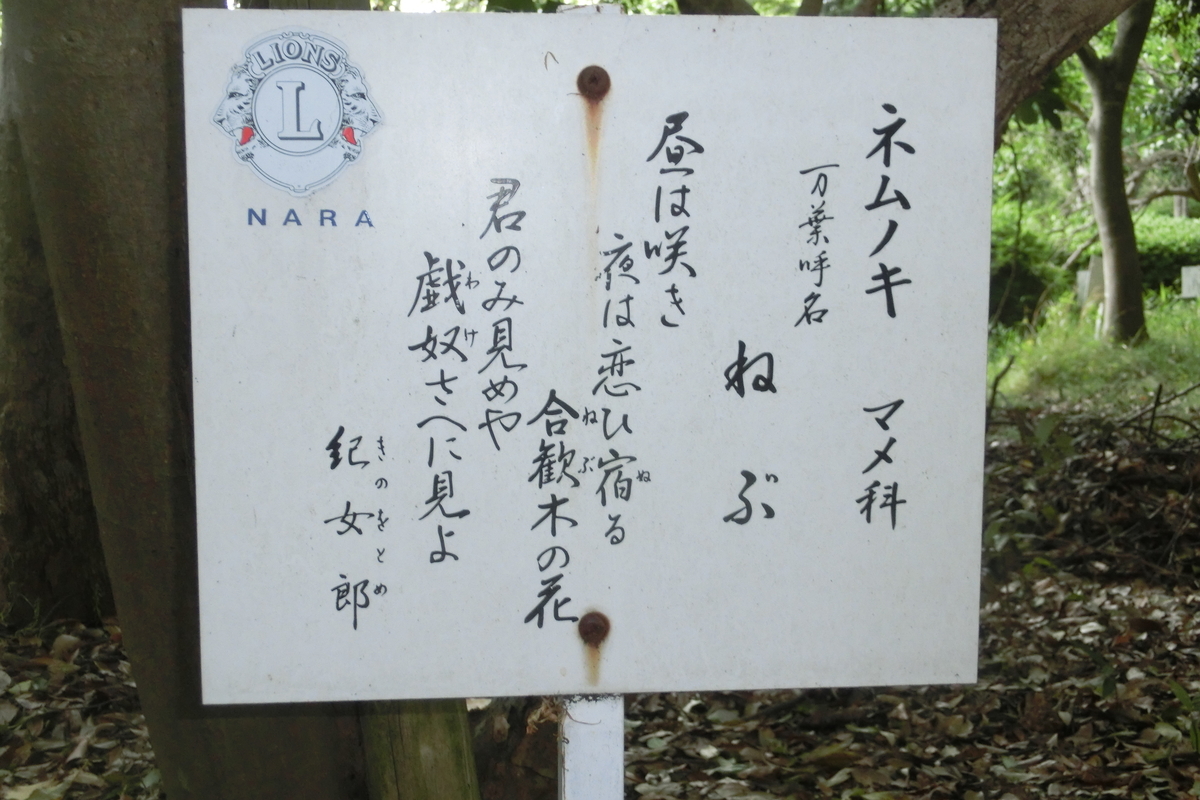 ネムノキ マメ科
万葉呼名
ねぶ
昼は咲き
夜は恋ひ宿る
ぬ
合歓木の花
ねぶ
君のみ見めや
戯奴さへに見よ
わけ
紀女郎
きのをとめ
LIONS
L
NARA